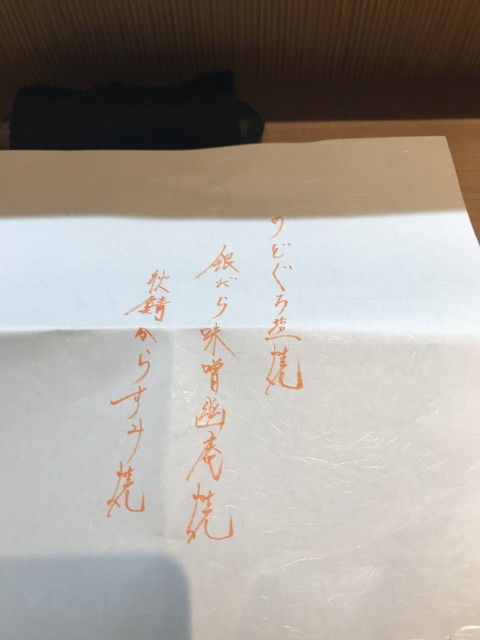 のどぐろ塩焼
銀だら味噌幽庵焼
秋鯖からすみ焼